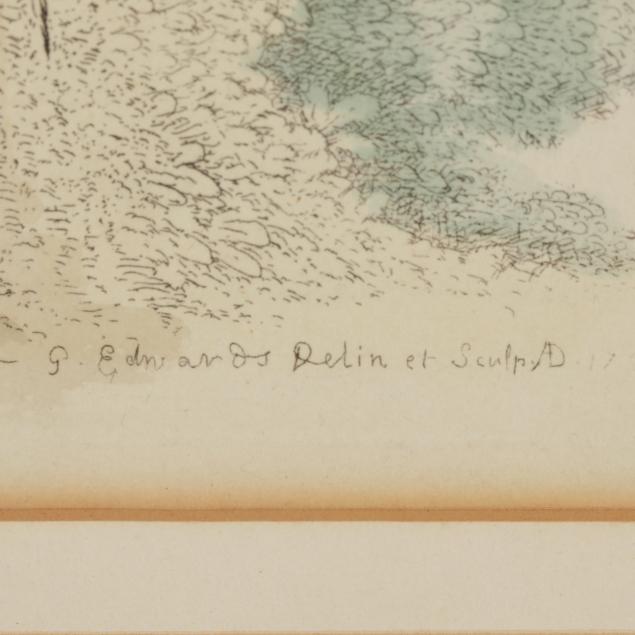 G. Edwards Delin et Sculp. AD 17